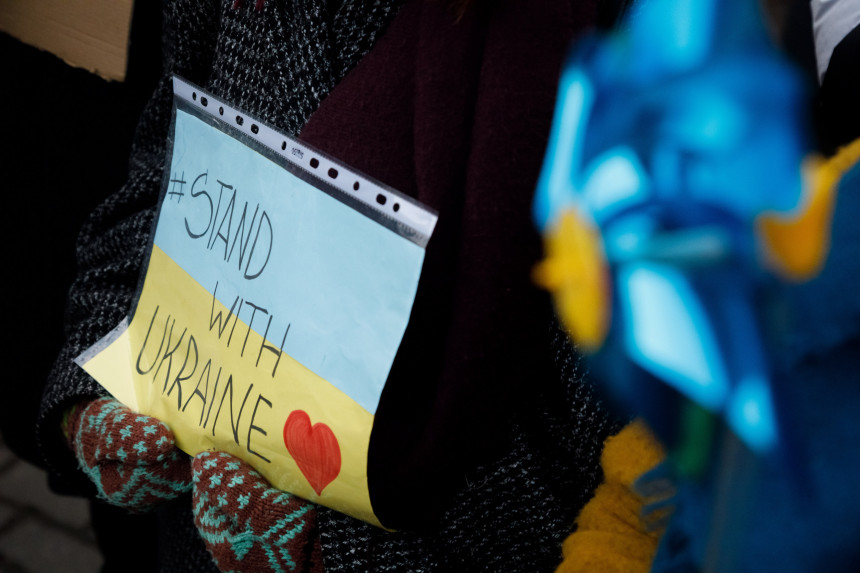 #STAND
WITH
UKRAINE